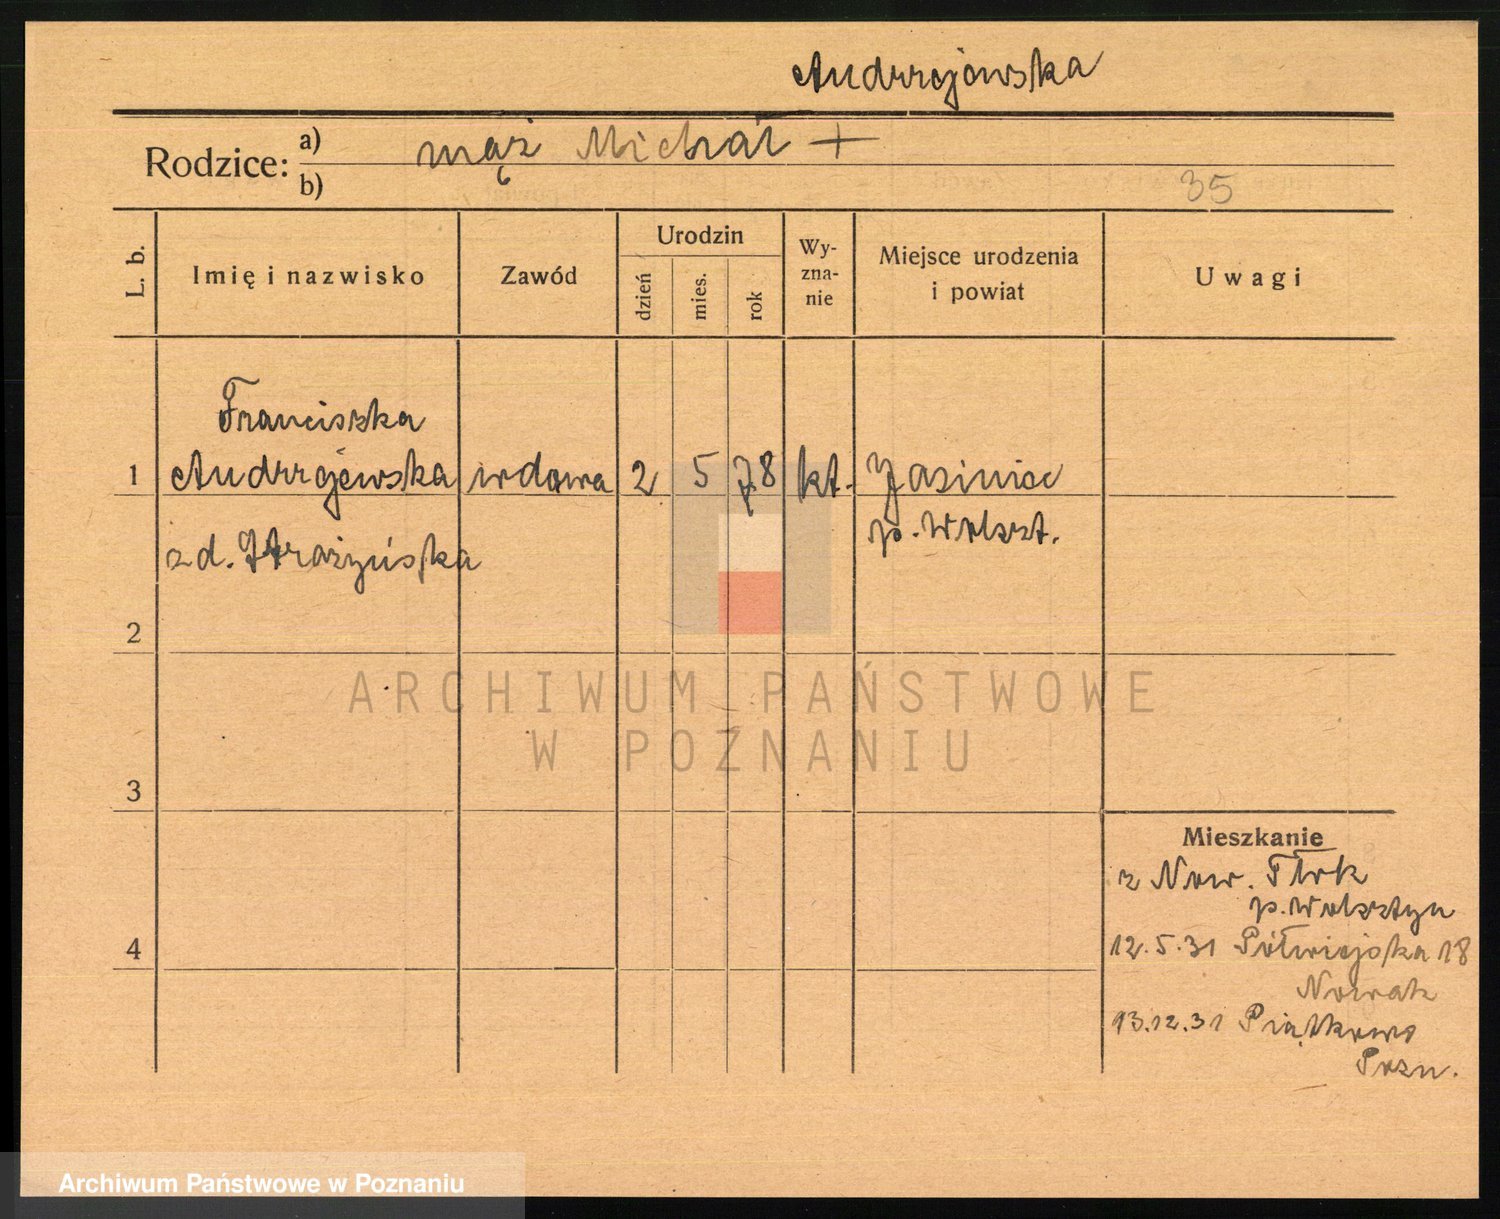 Andrzejewska
Rodzice: a) mąż Michał +
b)
35
L. b.
Imię i nazwisko
Zawód
Urodzin
dzień
mies.
rok
Wy-
zna-
nie
Miejsce urodzenia
i powiat
Uwagi
Franciszka
1 Andrzejewska wdowa 2 5 78 kt. Jasiniec
p. Wolszt.
z d. Strażyńska
2
ARCHIWUM PAŃSTWOWE
W POZNANIU
3
Mieszkanie
z Now. Tłok
p. Wolsztyn
4
12.5.31 Półwiejska 18
Nowak
13.12.31 Piątkowo
Pozn.
Archiwum Państwowe w Poznaniu